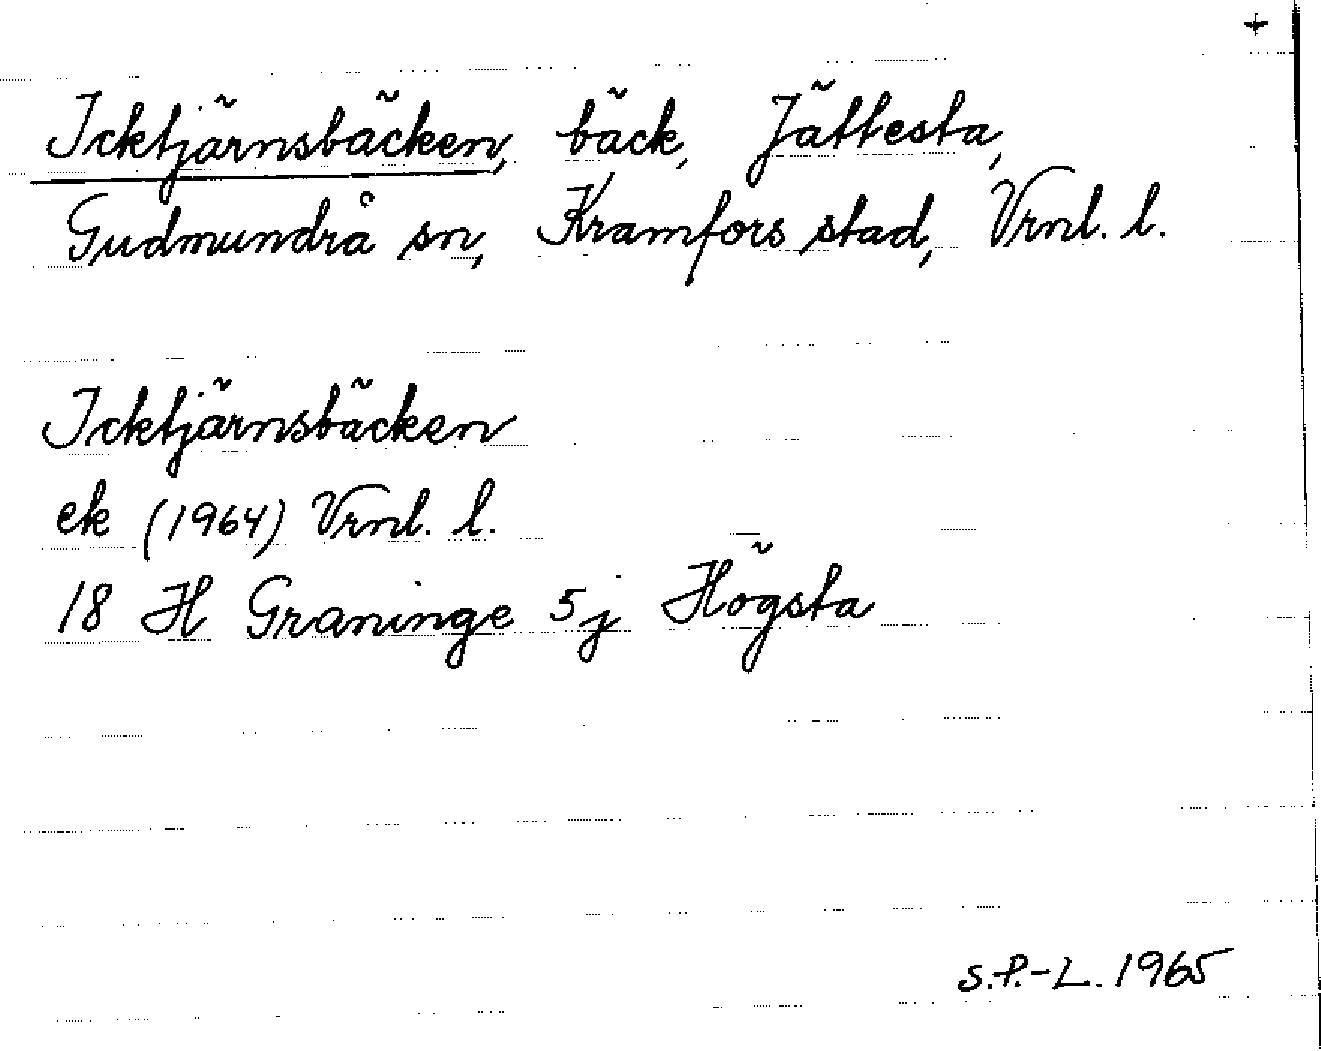 +
Icktjärnsbäcken, bäck, Jättesta,
Gudmundrå sn, Kramfors stad, Vrnl. l.
Icktjärnsbäcken
ek (1964) Vrnl. l.
18 H Graninge 5j Högsta
S.P.-L. 1965